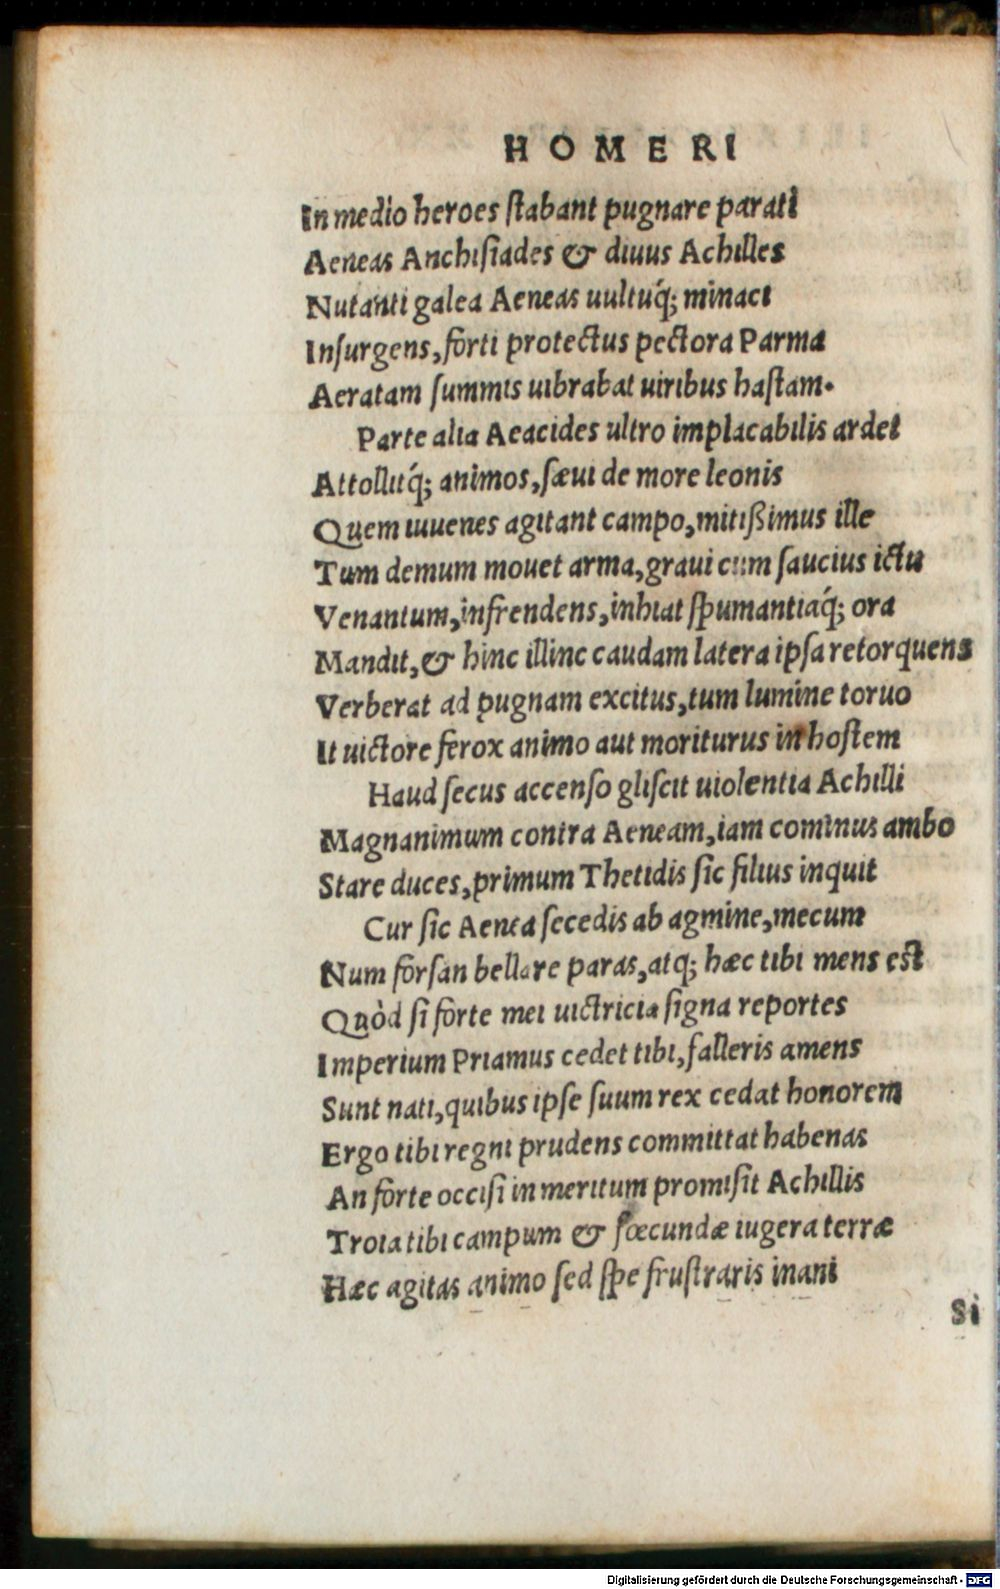 HOMERI
In medio heroes ſtabant pugnare parati
Aeneas Anchiſiades & diuus Achilles
Nutanti galea Aeneas uultuq́; minaci
Inſurgens, forti protectus pectora Parma
Aeratam ſummis uibrabat uiribus haſtam.
Parte alia Aeacides ultro implacabilis ardet
Attollitq́; animos, ſæui de more leonis
Quem iuuenes agitant campo, mitißimus ille
Tum demum mouet arma, graui cum ſaucius ictu
Venantum, infrendens, inhiat ſpumantiaq́; ora
Mandit, & hinc illinc caudam latera ipſa retorquens
Verberat ad pugnam excitus, tum lumine toruo
It uictore ferox animo aut moriturus in hoſtem
Haud ſecus accenſo gliſcit uiolentia Achilli
Magnanimum contra Aeneam, iam cominus ambo
Stare duces, primum Thetidis ſic filius inquit
Cur ſic Aenea ſecedis ab agmine, mecum
Num forſan bellare paras, atq; hæc tibi mens eſt
Quòd ſi forte mei uictricia ſigna reportes
Imperium Priamus cedet tibi, falleris amens
Sunt nati, quibus ipſe ſuum rex cedat honorem
Ergo tibi regni prudens committat habenas
An forte occiſi in meritum promiſit Achillis
Troia tibi campum & fœcundæ iugera terræ
Hæc agitas animo ſed ſpe fruſtraris inani
Si
Digitalisierung gefördert durch die Deutsche Forschungsgemeinschaft - DFG